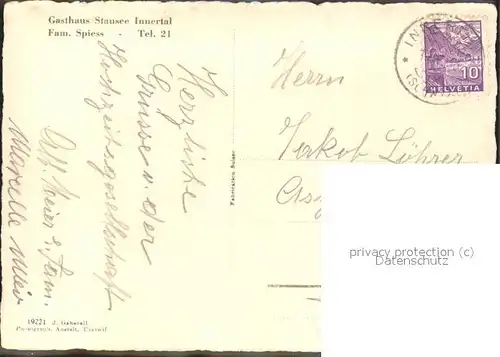 Gasthaus Stausee Innertal
Fam. Spiess - Tel. 21
Herzliche
Grüsse v. der
Hochzeitsgesellschaft
Alf. Meier & Fam.
Marcelle Meier
19221 J. Gaberell
Photograph. Anstalt, Thalwil
Fabrication Suisse
Herrn
Jakob Löhrer
10
HELVETIA
privacy protection (c)
Datenschutz